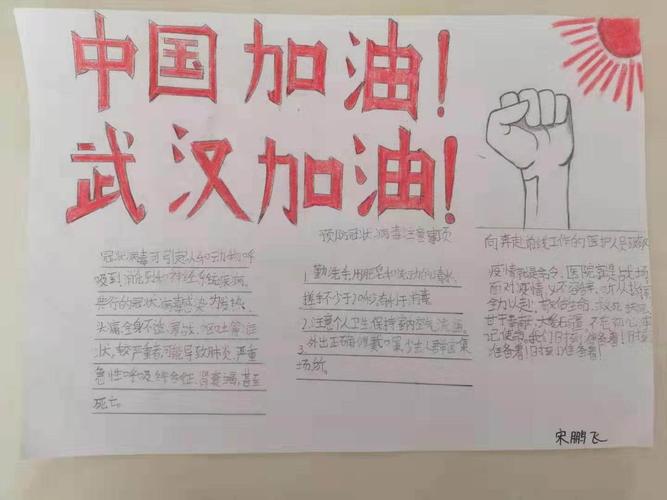 中国加油!
武汉加油!
冠状病毒可引起人和动物呼
吸到消化和神经系统疾病
典行的冠状病毒感染为发热、
头痛全身不适、寒战、呕吐等症
状,较严重者可能导致肺炎,严重
急性呼吸综合征,肾衰竭,甚至
死亡。
预防冠状病毒注意事项
1.勤洗手用肥皂和流动的
搓手不少于20秒
2.注意个人卫生保持室内空气流通。
3.外出正确佩戴口罩少去人群密集
场所。
向奔赴前线工作的医护人员致敬
疫情就是命令,医院就是战场
面对疫情义不容辞,
全力以赴,救治生命,
甘于奉献,大爱无疆,不忘初心,牢
记使命,我们时刻准备着!时刻
准备着!时刻准备着!
宋鹏飞